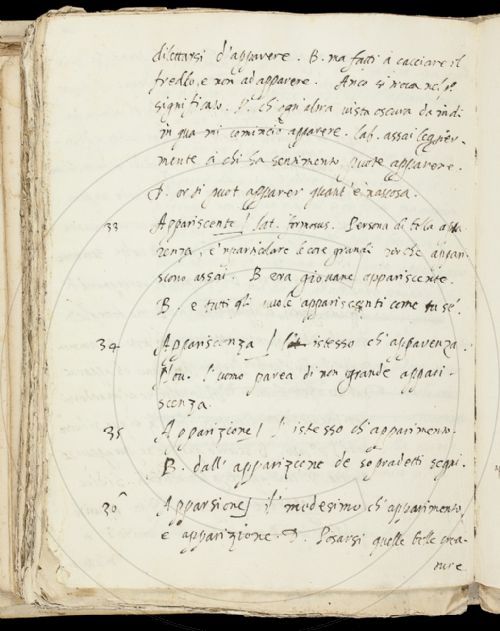 dilettarsi d'apparere. B. ma fatti à cacciare il
freddo, e non ad apparere. Anco si
significato. P. ch'ogni altra vista oscura da indi
in qua mi cominciò apparere. Laf. assai leggier-
mente à chi ha sentimento puote apparere.
D. or ti puot'apparer quant'è nascosa.
33 Appariscente / lat. formosus. Persona di bella appa
renza, è 'n particolare le cose grandi perche appari-
scono assai. B. era giovane appariscente.
B. e tutti gli appariscenti come tu se'.
34 Appariscenza / l'istesso ch'apparenza.
l'uomo parea di non grande appari-
scenza.
35 Apparizione / l'istesso ch'apparimento.
B. dall'apparizione de sopradetti segni.
36 Apparsione / il medesimo ch'apparimento
e apparizione. D. Posarsi quelle belle crea-
ture